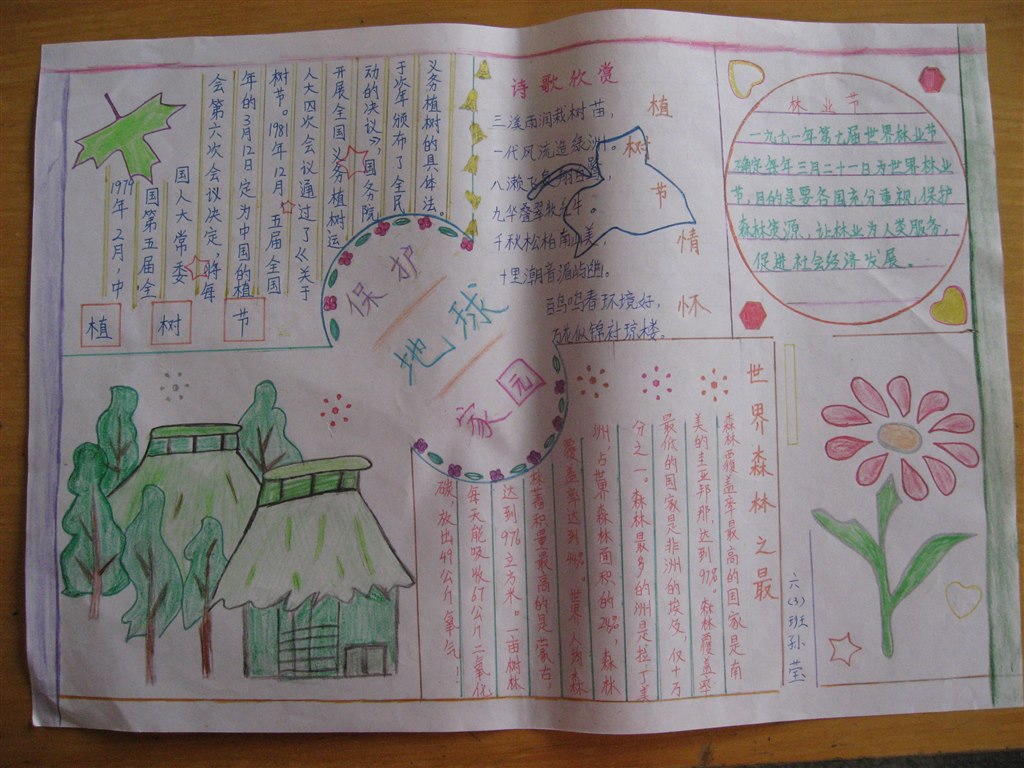 保护
地球
家园
植树节
1979年2月,中
国第五届全
国人大常委
会第六次会议决定,将每
年的3月12日定为中国的植
树节。1981年12月五届全国
人大四次会议通过了《关于
开展全国义务植树运
动的决议》,国务院
于次年颁布了全民
义务植树的具体法。
诗歌欣赏
植树节情怀
三溪雨润栽树苗,
一代风流造绿洲。
九华叠翠
千秋松柏南山美,
十里潮音涌屿幽。
百鸟鸣春环境好,
万花似锦衬琼楼。
林业节
一九七一年第七届世界林业节
确定每年三月二十一日为世界林业
节,目的是要各国充分重视,保护
森林资源、让林业为人类服务,
促进社会经济发展。
世界森林之最
森林覆盖率最高的国家是南
美的圭亚那,达到97%。森林覆盖率
最低的国家是非洲的埃及,仅十万
分之一。森林最多的洲是拉丁美
洲,占世界森林面积的24%,森林
覆盖率达到44%。世界人均森
林蓄积量最高的是蒙古,
达到976立方米。一亩树林
每天能吸收67公斤二氧化
碳,放出49公斤氧气!
六(3)班孙莹